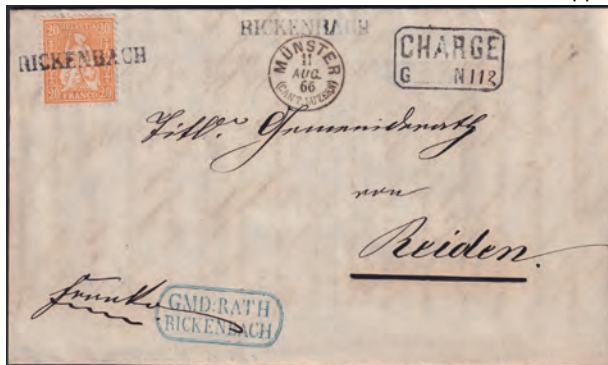 HELVETIA
20 20
RICKENBACH
20 FRANCO 20
RICKENBACH
MÜNSTER
11
AUG
66
(CANT. LUZERN)
CHARGE
G N 112
Titl. Gemeinderath
von
Reiden.
Franko
GMD: RATH
RICKENBACH